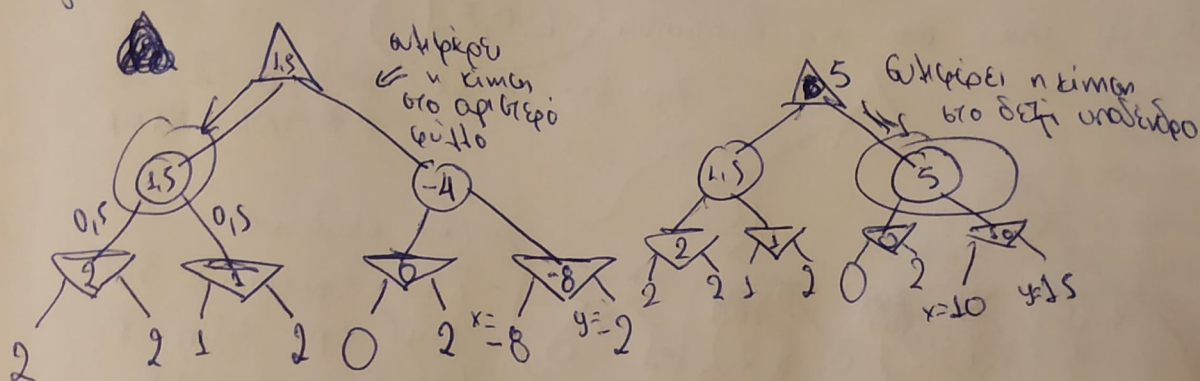 1,5
συμφέρει
η κίνηση
στο αριστερό
φύλλο
1,5
-4
0,5
0,5
2
1
0
-8
2
2
1
2
0
2
x=
-8
y=
-2
5
συμφέρει η κίνηση
στο δεξί υποδένδρο
1,5
5
2
1
0
10
2
2
1
2
0
2
x=10
y=15